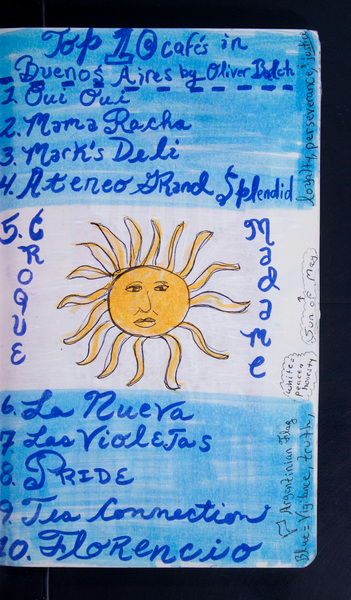 Top 10 Cafés in
Buenos Aires by Oliver Balch
1. Oui Oui
2. Mama Racha
3. Mark's Deli
4. Ateneo Grand Splendid
5. CROQUE Madame
6. La Nueva
7. Las Violetas
8. PRIDE
9. Tea Connection
10. Florencio
Argentinian Flag
Blue = Vigilance, truth,
loyalty, perseverance, justice
white =
peace
honesty
Sun of May